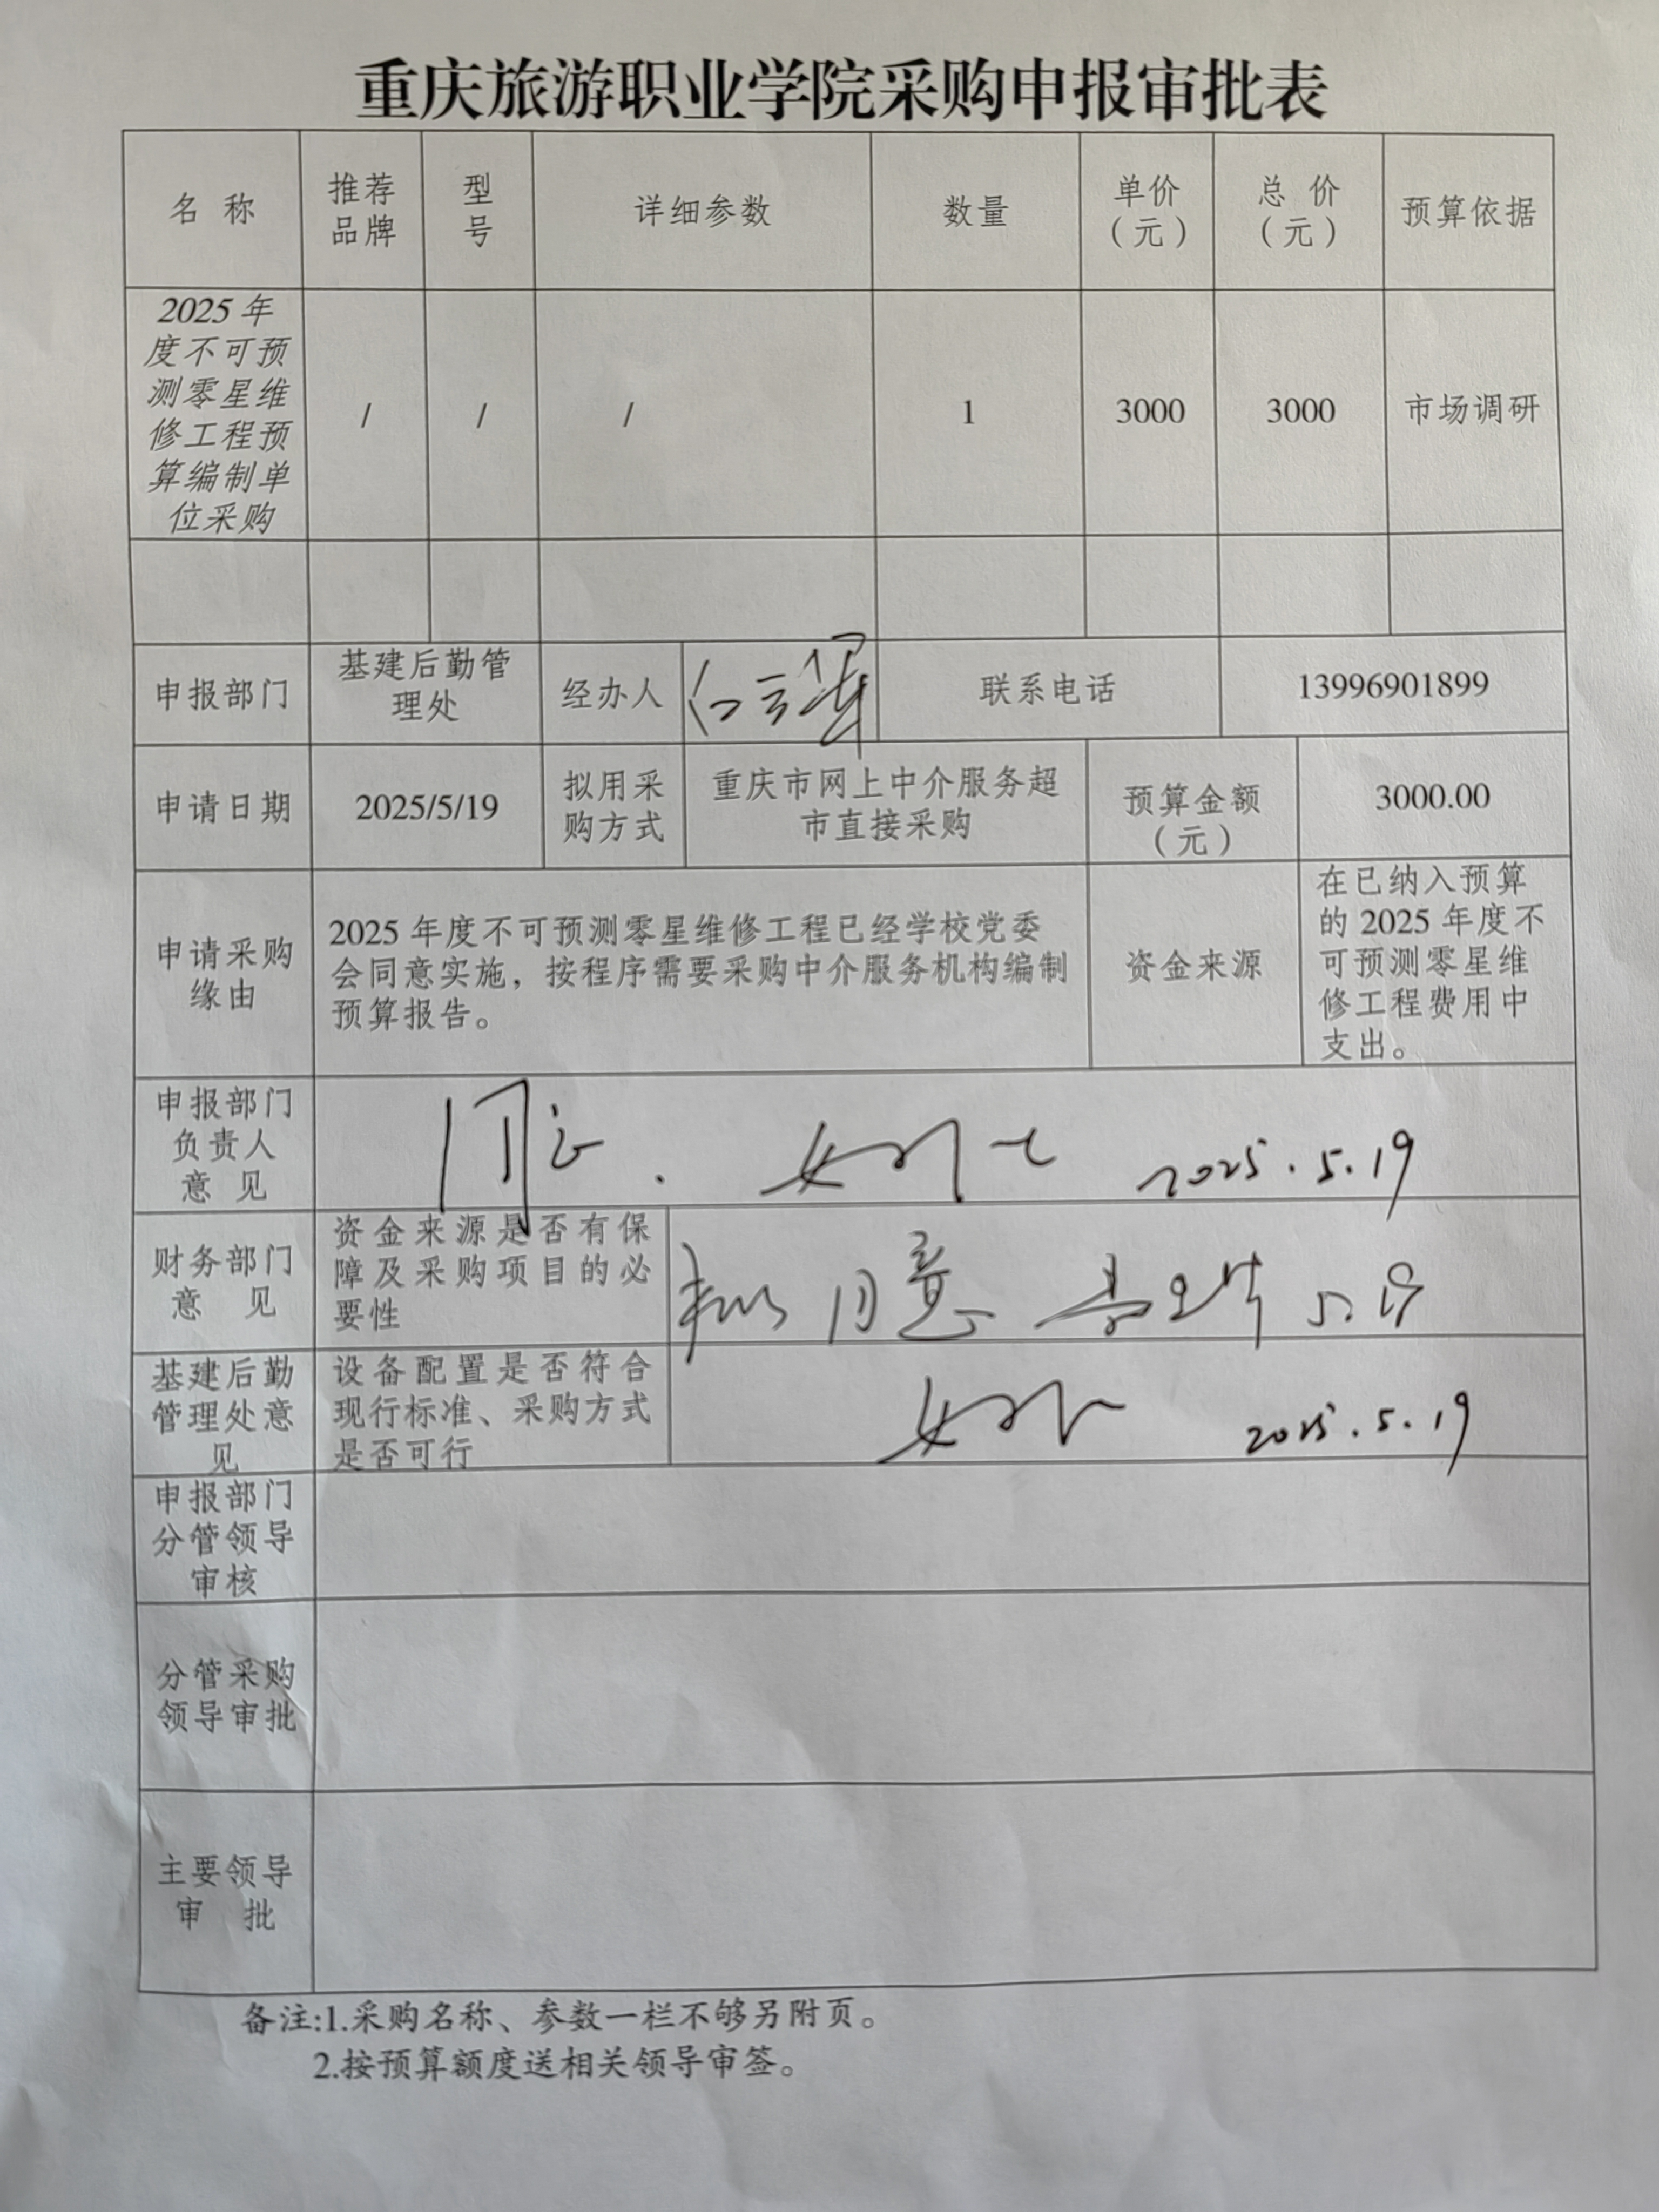 重庆旅游职业学院采购申报审批表
名 称
推荐
品牌
型
号
详细参数
数量
单价
（元）
总 价
（元）
预算依据
2025 年
度不可预
测零星维
修工程预
算编制单
位采购
/
/
/
1
3000
3000
市场调研
申报部门
基建后勤管
理处
经办人
联系电话
13996901899
申请日期
2025/5/19
拟用采
购方式
重庆市网上中介服务超
市直接采购
预算金额
（元）
3000.00
申请采购
缘由
2025 年度不可预测零星维修工程已经学校党委
会同意实施，按程序需要采购中介服务机构编制
预算报告。
资金来源
在已纳入预算
的 2025 年度不
可预测零星维
修工程费用中
支出。
申报部门
负责人
意 见
同意. 2025.5.19
财务部门
意 见
资金来源是否有保
障及采购项目的必
要性
拟同意 5.19
基建后勤
管理处意
见
设备配置是否符合
现行标准、采购方式
是否可行
2025.5.19
申报部门
分管领导
审核
分管采购
领导审批
主要领导
审 批
备注:1.采购名称、参数一栏不够另附页。
2.按预算额度送相关领导审签。